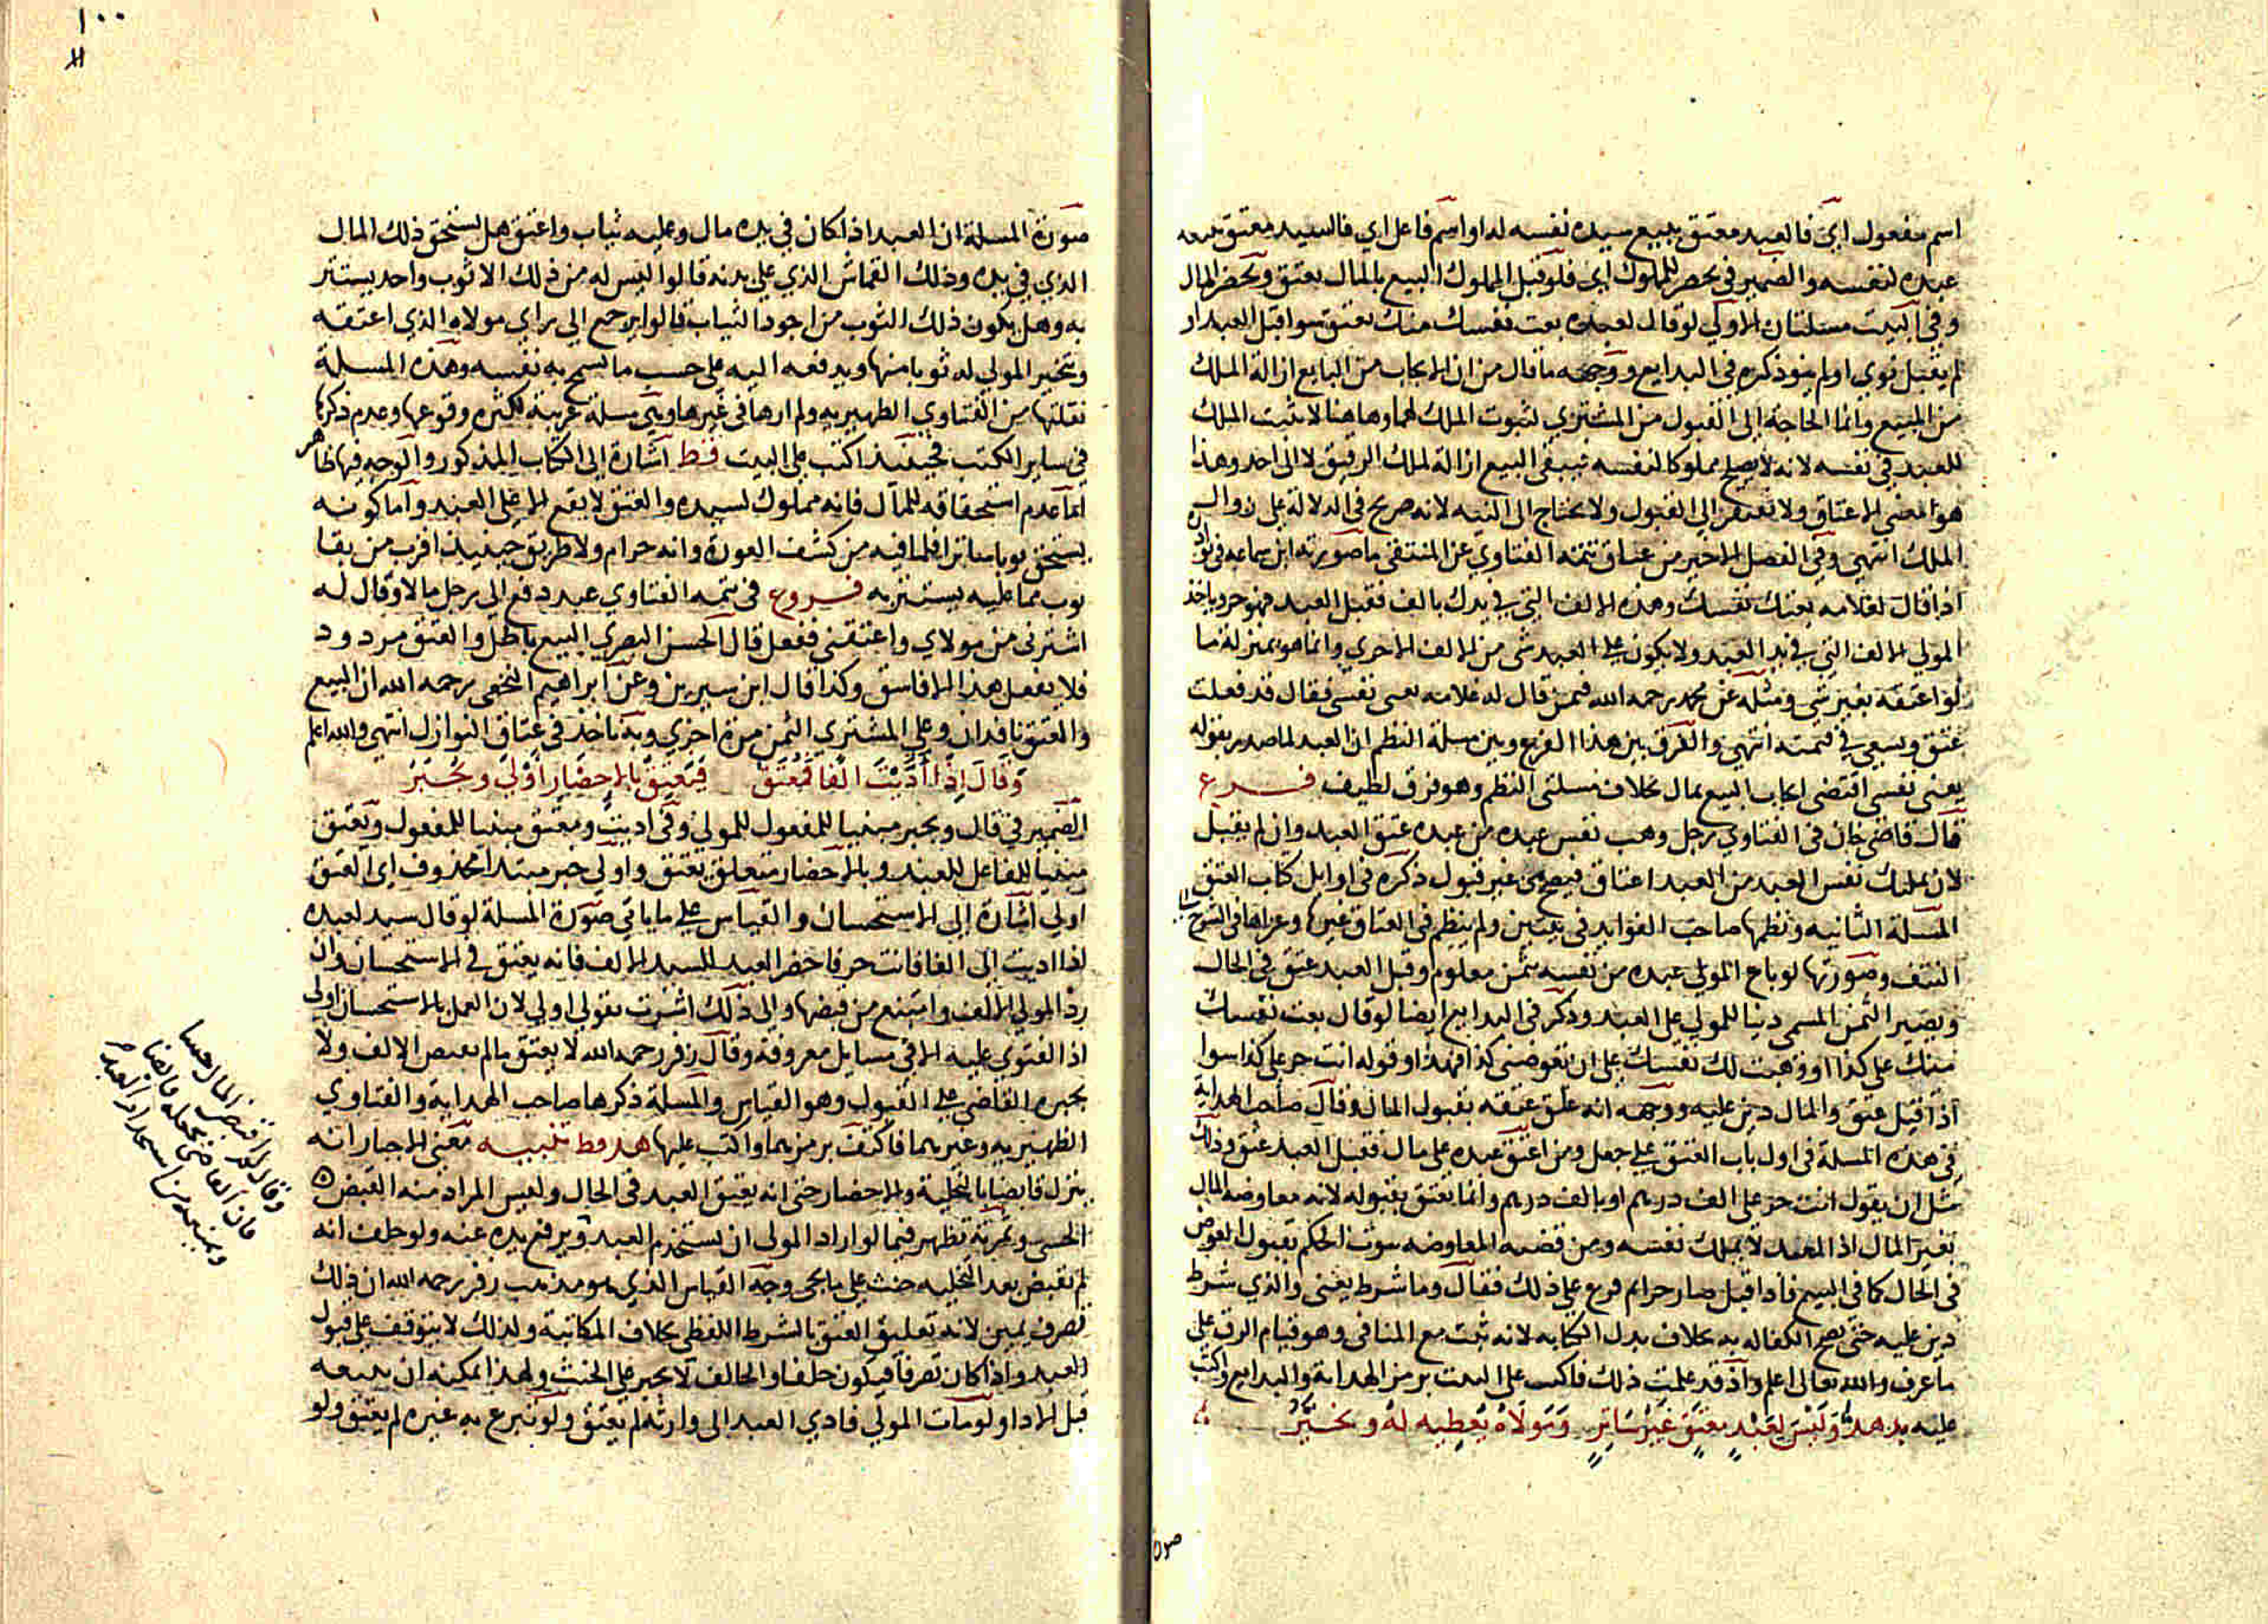 اسم مفعول اي فالعبد معتق ببيع سيده نفسه له او اسم فاعل اي فالسيد معتق ببيعه
عبده لنفسه والضمير في يحضر للمملوك اي فلو قبل المملوك البيع بالمال يعتق ويحضر المال
وفي البيت مسئلتان الاولي لو قال لعبده بعت نفسك منك يعتق سوا قبل العبد او
لم يقبل نوي او لم ينو ذكره في البدايع ووجهه ما قال من ان الايجاب من البايع ازالة الملك
من المبيع وانما الحاجة الي القبول من المشتري لثبوت الملك لهما وهاهنا لا يثبت الملك
للعبد في نفسه لانه لا يصلح مملوكا لنفسه فيبقي البيع ازالة لملك الرقيق لا الي احد وهذا
هو معني الاعتاق ولا يفتقر الي القبول ولا يحتاج الي النيه لانه صريح في الدلالة علي زوال
الملك انتهي وفي الفصل الاخير من عتاق تتمة الفتاوي عن المنتقي ما صورته ابن سماعه في نوادره
اذا قال لغلامه بعتك نفسك وهذه الالف التي في يدك بالف فقبل العبد فهو حر وياخذ
المولي الالف التي في يد العبد ولا يكون علي العبد شي من الالف الاخري وانما هو بمنزلة ما
لو اعتقه بغير شي ومثله عن محمد رحمه الله فيمن قال له غلامه بعني نفسي فقال قد فعلت
عتق وسعي في قيمته انتهي والفرق بين هذا الفرع وبين مسلة النظم ان العبد لما صدر بقوله
بعني نفسي اقتضي ايجاب البيع بمال بخلاف مسلتي النظم وهو فرق لطيف فرع
قال قاضي خان في الفتاوي رجل وهب نفس عبده من عبده عتق العبد وان لم يقبل
لان تمليك نفس العبد من العبد اعتاق فيصح من غير قبول ذكره في اوايل كتاب العتق
المسلة الثانيه ونظمها صاحب الفوايد في بيتين ولم ينظم في العتاق غيرها وعزاها في الشرح الي
النتف وصورتها لو باع المولي عبده من نفسه بثمن معلوم وقبل العبد عتق في الحال
ويصير الثمن المسمي دينا للمولي علي العبد وذكر في البدايع ايضا لو قال بعت نفسك
منك علي كذا او وهبت لك نفسك علي ان تعوضني كذا فهذا وقوله انت حر علي كذا سوا
اذا قبل عتق والمال دين عليه ووجهه انه علق عتقه بقبول المال وقال صاحب الهداية
في هذه المسلة في اول باب العتق علي جعل ومن اعتق عبده علي مال فقبل العبد عتق وذلك
مثل ان يقول انت حر علي الف درهم او بالف درهم وانما يعتق بقبوله لانه معاوضة المال
بغير المال اذ العبد لا يملك نفسه ومن قضية المعاوضه ثبوت الحكم بقبول العوض
في الحال كما في البيع فاذا قبل صار حرا ثم فرع علي ذلك فقال وما شرط يعني والذي شرط
دين عليه حتي يصح الكفاله به بخلاف بدل الكتابه لانه ثبت مع المنافي وهو قيام الرق علي
ما عرف والله تعالي اعلم واذ قد علمت ذلك فاكتب علي البيت برمز الهداية والبدايع واكتب
عليه بد هد وَلَيْسَ لِعَبْدٍ مُعْتَقٍ غَيْرُ سَاتِرٍ وَمَولَاهُ يُعْطِيه لَهُ وَيُخَيَّرُ
صورة
١٠٠
صورة المسلة ان العبد اذا كان في يده مال وعليه ثياب واعتق هل يستحق ذلك المال
الذي في يده وذلك القماش الذي علي بدنه قالوا ليس له من ذلك الا ثوب واحد يستتر
به وهل يكون ذلك الثوب من اجود الثياب قالوا يرجع الي راي مولاه الذي اعتقه
ويتخير المولي له ثوبا منها ويدفعه اليه علي حسب ما تسمح به نفسه وهذه المسلة
نقلتها من الفتاوي الظهيريه ولم ارها في غيرها وهي مسلة غريبة لكثرة وقوعها وعدم ذكرها
في ساير الكتب فحينئذ اكتب علي البيت فظ اشارة الي الكتاب المذكور والوجه فيها ظاهر
اما عدم استحقاقه للمال فانه مملوك لسيده والعتق لا يقع الا علي العبد واما كونه
يستحق ثوبا ساترا فلما فيه من كشف العورة وانه حرام ولا طريق حينيذ اقرب من بقا
ثوب مما عليه يستتر به فروع في تتمة الفتاوي عبد دفع الي رجل مالا وقال له
اشترني من مولاي واعتقني ففعل قال الحسن البصري البيع باطل والعتق مردود
فلا يفعل هذا الا فاسق وكذا قال ابن سيرين وعن ابراهيم النخعي رحمه الله ان البيع
والعتق نافذان وعلي المشتري الثمن مرة اخري وبه ناخذ في عتاق النوازل انتهي والله اعلم
وَقَالَ اِذَا اُدِّيتَ اَلْفًا فَمُعْتَقٌ فَيُعْتَقُ بِالْاِحْضَارِ اَوْلَي وَيُجْبَرُ
الضمير في قال ويجبر مبنيا للمفعول للمولي وفي اديت ومعتق مبنيا للمفعول ويعتق
مبنيا للفاعل للعبد وبالاحضار متعلق بيعتق واولي خبر مبتدا محذوف اي العتق
اولي اشارة الي الاستحسان والقياس علي ما ياتي صورة المسلة لو قال سيد لعبده
اذا اديت الي الفا فانت حر فاحضر العبد للسيد الالف فانه يعتق في الاستحسان وان
رد المولي الالف وامتنع من قبضها والي ذلك اشرت بقولي اولي لان العمل بالاستحسان اولي
اذ الفتوي عليه الا في مسايل معروفة وقال زفر رحمه الله لا يعتق ما لم يقبض الالف ولا
يجبره القاضي علي القبول وهو القياس والمسلة ذكرها صاحب الهداية والفتاوي
الظهيريه وغيرهما فاكتف برمزيهما واكتب عليها هد وظ تنبيه معني الاجبار انه
ينزل قابضا بالتخلية والاحضار حتي انه يعتق العبد في الحال وليس المراد منه القبض
الحسي وثمرته تظهر فيما لو اراد المولي ان يستخدم العبد ويرفع يده عنه ولو حلف انه
لم يقبض بعد التخليه حنث علي ما يجي وجه القياس الذي هو مذهب زفر رحمه الله ان ذلك
تصرف يمين لانه تعليق العتق بالشرط اللفظي بخلاف المكاتبة ولذلك لا يتوقف علي قبول
العبد واذا كان تصرفا فيكون حلفا والحالف لا يجبر علي الحنث ولهذا يمكنه ان يبيعه
قبل الادا ولو مات المولي فادي العبد الي وارثه لم يعتق ولو تبرع به غيره لم يعتق ولو